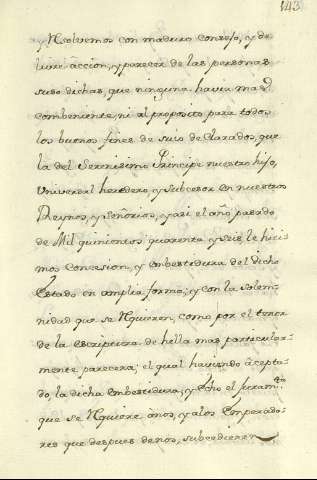 143
y Resolvemos con maduro Consejo, y de
livre accion, y parecer de las personas
suso dichas, que ninguna havia mas
combeniente, ni al proposito para todos
los buenos fines de suso declarados, que
la del Serenisimo Principe nuestro hijo,
Universal heredero, y Subcesor en nuestros
Reynos, y Señorios, y asi el año pasado
de Mil quinientos quarenta y seis le hici
mos Concesion, y embestidura del dicho
Estado en amplia forma, y con la solem
nidad que se Requieren, como por el tenor
de la escriptura de hella mas particular-
mente, parecera; el qual haviendo acepta-
do, la dicha embestidura, y fho el juram.to
que se Requiere ànos, y alos Emperado-
res que despues denos, subcedieren